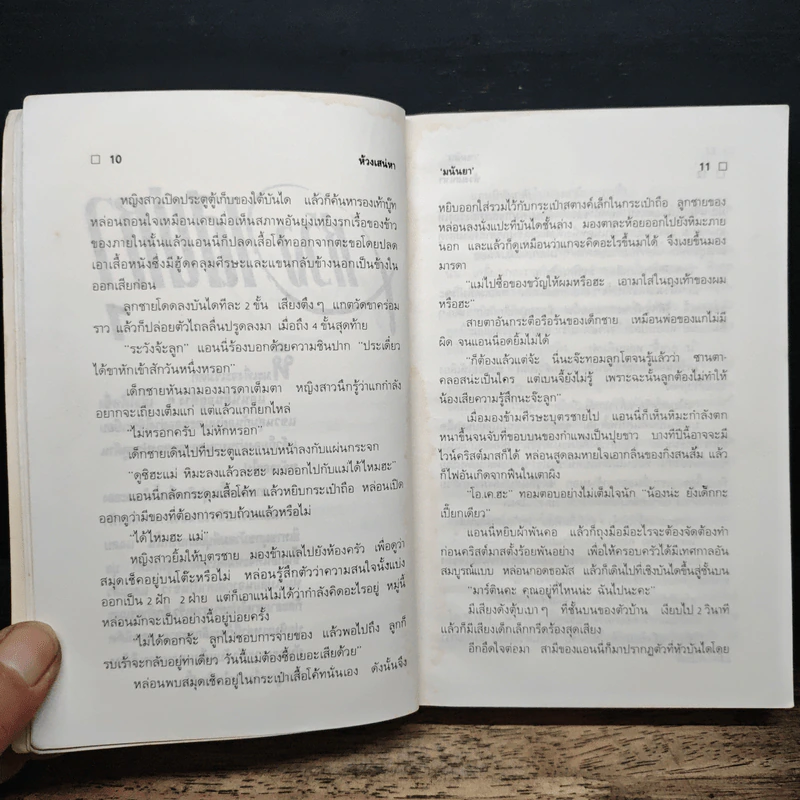 10
ห้วงเสน่หา
หญิงสาวเปิดประตูตู้เก็บของใต้บันได แล้วก็ค้นหารองเท้าบู๊ท
หล่อนถอนใจเหมือนเคยเมื่อเห็นสภาพอันยุ่งเหยิงรกเรื้อของข้าว
ของภายในนั้นแล้วแอนนี่ก็ปลดเสื้อโค้ทออกจากตะขอโดยปลด
เอาเสื้อหนังซึ่งมีฮู้ดคลุมศีรษะและแขนกลับข้างนอกเป็นข้างใน
ออกเสียก่อน
ลูกชายโดดลงบันไดทีละ 2 ขั้น เสียงตึงๆ แกตวัดขาคร่อม
ราว แล้วก็ปล่อยตัวไถลลื่นปรูดลงมา เมื่อถึง 4 ขั้นสุดท้าย
“ระวังจ้ะลูก” แอนนี่ร้องบอกด้วยความชินปาก “ประเดี๋ยว
ได้ขาหักเข้าสักวันหนึ่งหรอก”
เด็กชายหันมามองมารดาเต็มตา หญิงสาวนึกรู้ว่าแกกำลัง
อยากจะเถียงเต็มแก่ แต่แล้วแกก็ยักไหล่
“ไม่หรอกครับ ไม่หักหรอก”
เด็กชายเดินไปที่ประตูและแนบหน้าลงกับแผ่นกระจก
“ดูซิฮะแม่ หิมะลงแล้วล่ะฮะ ผมออกไปกับแม่ได้ไหมฮะ”
แอนนี่กลัดกระดุมเสื้อโค้ท แล้วหยิบกระเป๋าถือ หล่อนเปิด
ออกดูว่ามีของที่ต้องการครบถ้วนแล้วหรือไม่
“ได้ไหมฮะ แม่”
หญิงสาวยิ้มให้บุตรชาย มองข้ามแลไปยังห้องครัว เพื่อดูว่า
สมุดเช็คอยู่บนโต๊ะหรือไม่ หล่อนรู้สึกตัวว่าความสนใจนั้งแบ่ง
ออกเป็น 2 ฝัก 2 ฝ่าย แต่ก็เอาแน่ไม่ได้ว่ากำลังคิดอะไรอยู่ หมู่นี้
หล่อนมักจะเป็นอย่างนี้อยู่บ่อยครั้ง
“ไม่ได้ดอกจ้ะ ลูกไม่ชอบการจ่ายของ แล้วพอไปถึง ลูกก็
รบเร้าจะกลับอยู่ท่าเดียว วันนี้แม่ต้องซื้อเยอะเสียด้วย”
หล่อนพบสมุดเช็คอยู่ในกระเป๋าเสื้อโค้ทนั่นเอง ดังนั้นจึง
‘มนันยา’
11
หยิบออกใส่รวมไว้กับกระเป๋าสตางค์เล็กในกระเป๋าถือ ลูกชายของ
หล่อนลงนั่งแปะที่บันไดชั้นล่าง มองตาละห้อยออกไปยังหิมะภาย
นอก และแล้วก็ดูเหมือนว่าแกจะคิดอะไรขึ้นมาได้ จึงเงยขึ้นมอง
มารดา
“แม่ไปซื้อของขวัญให้ผมหรือฮะ เอามาใส่ในถุงเท้าของผม
หรือฮะ”
สายตาอันกระตือรือร้นของเด็กชาย เหมือนพ่อของแกไม่มี
ผิด จนแอนนี่อดยิ้มไม่ได้
“ก็ต้องแล้วแต่จ้ะ นี่นะจ๊ะทอมลูกโตจนรู้แล้วว่า ซานตา-
คลอสน่ะเป็นใคร แต่เบนจี้ยังไม่รู้ เพราะฉะนั้นลูกต้องไม่ทำให้
น้องเสียความรู้สึกนะจ๊ะลูก”
เมื่อมองข้ามศีรษะบุตรชายไป แอนนี่ก็เห็นหิมะกำลังตก
หนาขึ้นจนจับที่ขอบบนของกำแพงเป็นปุยขาว บางทีปีนี้อาจจะมี
ไวน์คริสต์มาสก็ได้ หล่อนสูดลมหายใจเอากลิ่นของกิ่งสนส้ม แล้ว
ก็ไฟอันเกิดจากฟืนในเตาผิง
“โอ.เค.ฮะ” ทอมตอบอย่างไม่เต็มใจนัก “น้องน่ะ ยังเด็กกะ
เปี๊ยกเดียว”
แอนนี่หยิบผ้าพันคอ แล้วก็ถุงมือมีอะไรจะต้องจัดต้องทำ
ก่อนคริสต์มาสตั้งร้อยพันอย่าง เพื่อให้ครอบครัวได้มีเทศกาลอัน
สมบูรณ์แบบ หล่อนกอดทอมัส แล้วก็เดินไปที่เชิงบันไดขึ้นสู่ชั้นบน
“มาร์ตินคะ คุณอยู่ที่ไหนน่ะ ฉันไปนะคะ”
มีเสียงดังตุ้บเบาๆ ที่ชั้นบนของตัวบ้าน เงียบไป 2 วินาที
แล้วก็มีเสียงเด็กเล็กกรีดร้องสุดเสียง
อีกอึดใจต่อมา สามีของแอนนี่ก็มาปรากฏตัวที่หัวบันไดโดย